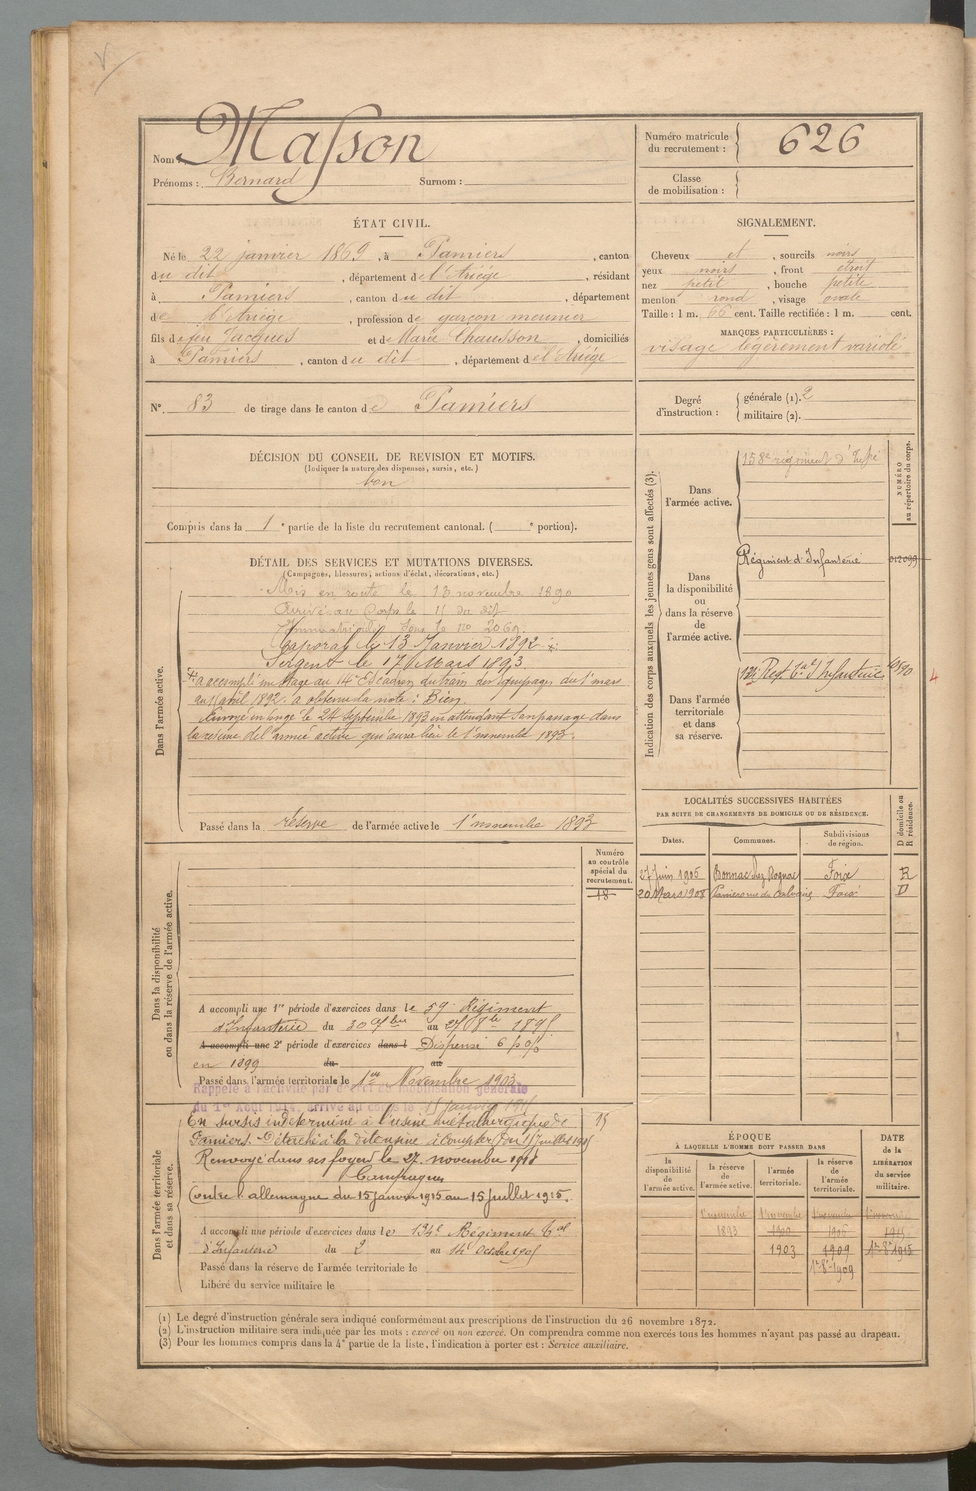 Nom : Masson
Prénoms : Bernard Surnom :
Numéro matricule du recrutement : 626
Classe de mobilisation :
ÉTAT CIVIL.
Né le 22 janvier 1869, à Pamiers, canton
du dit, département de l'Ariège, résidant
à Pamiers, canton du dit, département
de l'Ariège, profession de garçon meunier
fils de feu Jacques et de Marie Chausson, domiciliés
à Pamiers, canton du dit, département de l'Ariège
SIGNALEMENT.
Cheveux et, sourcils noirs
yeux noirs, front étroit
nez petit, bouche petite
menton rond, visage ovale
Taille : 1 m. 66 cent. Taille rectifiée : 1 m. cent.
MARQUES PARTICULIÈRES :
visage légèrement variolé
N° 83 de tirage dans le canton de Pamiers
Degré d'instruction : générale (1). 2
militaire (2).
DÉCISION DU CONSEIL DE REVISION ET MOTIFS.
(Indiquer la nature des dispenses, sursis, etc.)
bon
Compris dans la 1e partie de la liste du recrutement cantonal. ( e portion).
DÉTAIL DES SERVICES ET MUTATIONS DIVERSES.
(Campagnes, blessures, actions d'éclat, décorations, etc.)
Dans l'armée active.
Mis en route le 13 novembre 1890
Arrivé au Corps le 15 du dit
Immatriculé sous le no 2069.
Caporal le 13 Janvier 1892
Sergent le 17 Mars 1893.
a accompli un stage au 14e Escadron du train des équipages du 1er mars
au 1er avril 1892. a obtenu la note : Bien.
Envoyé en congé le 24 Septembre 1893 en attendant son passage dans
la réserve de l'armée active qui aura lieu le 1er novembre 1893.
Passé dans la réserve de l'armée active le 1er novembre 1893
Indication des corps auxquels les jeunes gens sont affectés (3).
NUMÉRO au répertoire du corps.
Dans l'armée active.
158e régiment d'Infie
Dans la disponibilité ou dans la réserve de l'armée active.
Régiment d'Infanterie
Dans l'armée territoriale et dans sa réserve.
Regt Tal d'Infanterie
4
LOCALITÉS SUCCESSIVES HABITÉES
PAR SUITE DE CHANGEMENTS DE DOMICILE OU DE RÉSIDENCE.
D domicile ou R résidence.
Dates. Communes. Subdivisions de région.
27 Juin 1905 Bonnac Foix R
20 Mars 1908 Pamiers Foix D
Dans la disponibilité ou dans la réserve de l'armée active.
Numéro au contrôle spécial du recrutement.
18
A accompli une 1re période d'exercices dans le 59e Régiment
d'Infanterie du 30 7bre au 27 8bre 1895
A accompli une 2e période d'exercices dans l Dispensé
en 1899 du au
Passé dans l'armée territoriale le 1er Novembre 1903
Rappelé à l'activité par décret de mobilisation générale
du 1er Août 1914, arrivé au corps le 15 janvier 1915
Dans l'armée territoriale et dans sa réserve.
En sursis indéterminé à l'usine métallurgique de
Pamiers. Détaché à la
Renvoyé dans ses foyers le 27 novembre 1918
Campagnes
Contre l'allemagne du 15 janvier 1915 au 15 juillet 1915.
A accompli une période d'exercices dans le 134e Régiment Tal
d'Infanterie du 2 au 14 Octobre 1905
Passé dans la réserve de l'armée territoriale le
Libéré du service militaire le
ÉPOQUE
À LAQUELLE L'HOMME DOIT PASSER DANS
DATE de la LIBÉRATION du service militaire.
la disponibilité de l'armée active. la réserve de l'armée active. l'armée territoriale. la réserve de l'armée territoriale.
1er novembre 1er novembre 1er novembre 1er novembre
1893 1900 1906 1915
1903 1909 1er 8bre 1915
1er 8bre 1909
(1) Le degré d'instruction générale sera indiqué conformément aux prescriptions de l'instruction du 26 novembre 1872.
(2) L'instruction militaire sera indiquée par les mots : exercé ou non exercé. On comprendra comme non exercés tous les hommes n'ayant pas passé au drapeau.
(3) Pour les hommes compris dans la 4e partie de la liste, l'indication à porter est : Service auxiliaire.